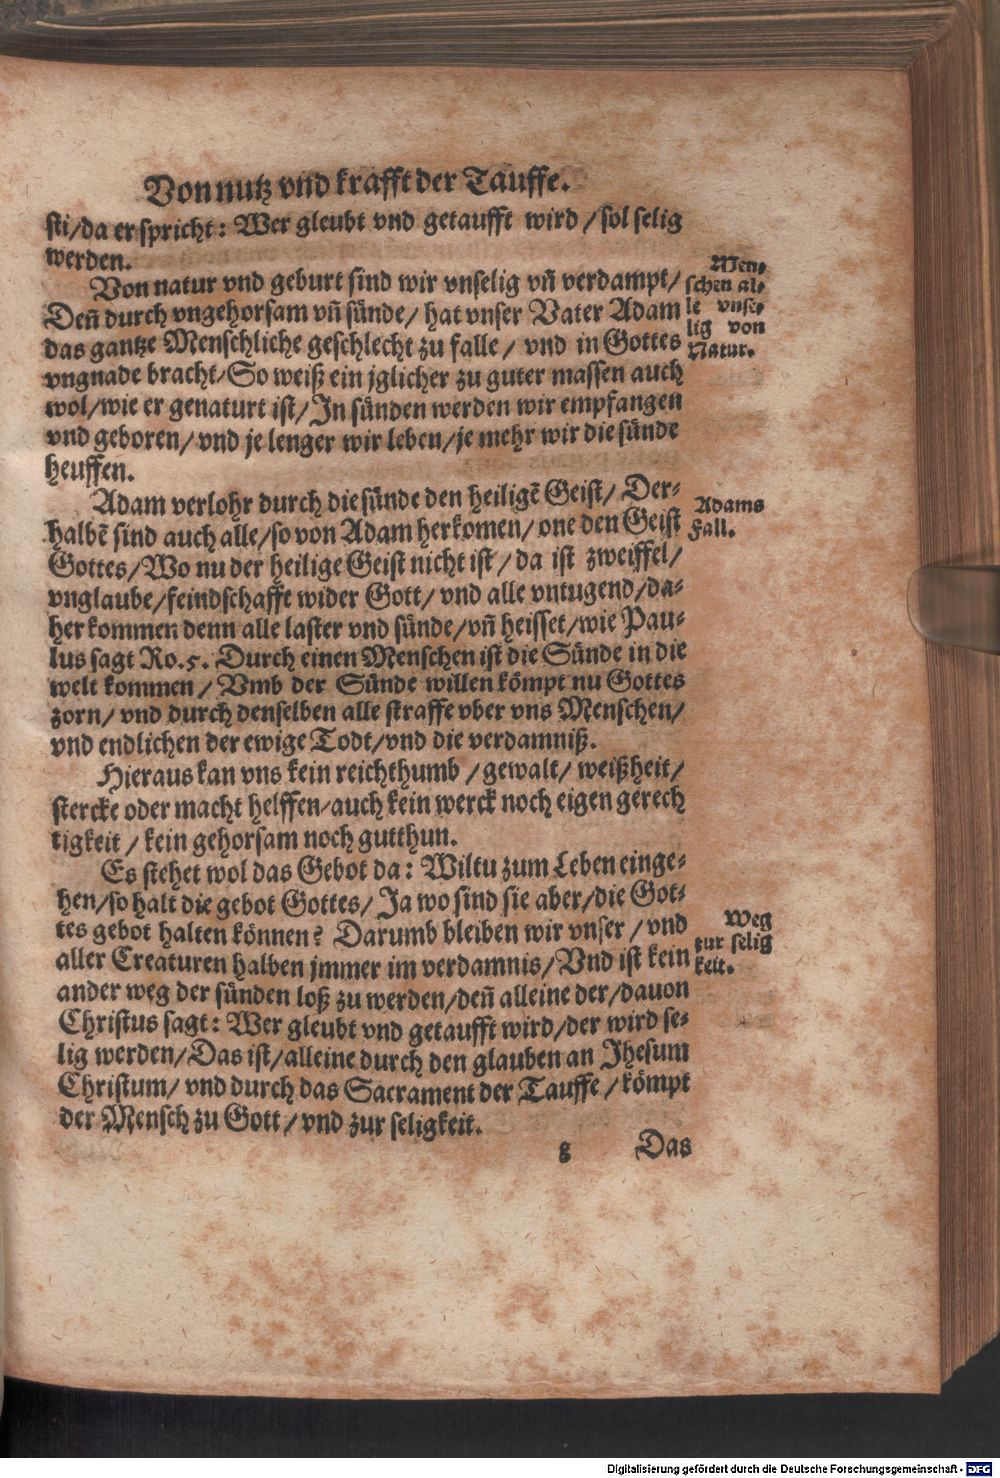 Von nutz vnd krafft der Tauffe.
sti/da er spricht: Wer gleubt vnd getaufft wird/sol selig
werden.
Von natur vnd geburt sind wir vnselig vñ verdampt/
Deñ durch vngehorsam vñ sünde/ hat vnser Vater Adam
das gantze Menschliche geschlecht zu falle/ vnd in Gottes
vngnade bracht/So weiß ein jglicher zu guter massen auch
wol/wie er genaturt ist/In sünden werden wir empfangen
vnd geboren/vnd je lenger wir leben/je mehr wir die sünde
heuffen.
Men-
schen al-
le vnse-
lig von
Natur.
Adam verlohr durch die sünde den heiligē Geist/ Der-
halbē sind auch alle/so von Adam herkomen/one den Geist
Gottes/Wo nu der heilige Geist nicht ist/da ist zweiffel/
vnglaube/feindschafft wider Gott/ vnd alle vntugend/da-
her kommen denn alle laster vnd sünde/vñ heisset/wie Pau-
lus sagt Ro.5. Durch einen Menschen ist die Sünde in die
welt kommen/ Vmb der Sünde willen kömpt nu Gottes
zorn/ vnd durch denselben alle straffe vber vns Menschen/
vnd endlichen der ewige Todt/vnd die verdamniß.
Adams
Fall.
Hieraus kan vns kein reichthumb/gewalt/ weißheit/
stercke oder macht helffen/auch kein werck noch eigen gerech
tigkeit/ kein gehorsam noch gutthun.
Es stehet wol das Gebot da: Wiltu zum Leben einge-
hen/so halt die gebot Gottes/ Ja wo sind sie aber/die Got-
tes gebot halten können? Darumb bleiben wir vnser/ vnd
aller Creaturen halben jmmer im verdamnis/Vnd ist kein
ander weg der sünden loß zu werden/deñ alleine der/dauon
Christus sagt: Wer gleubt vnd getaufft wird/der wird se-
lig werden/Das ist/alleine durch den glauben an Jhesum
Christum/ vnd durch das Sacrament der Tauffe/ kömpt
der Mensch zu Gott/ vnd zur seligkeit.
Weg
zur selig
keit.
g Das
Digitalisierung gefördert durch die Deutsche Forschungsgemeinschaft - DFG